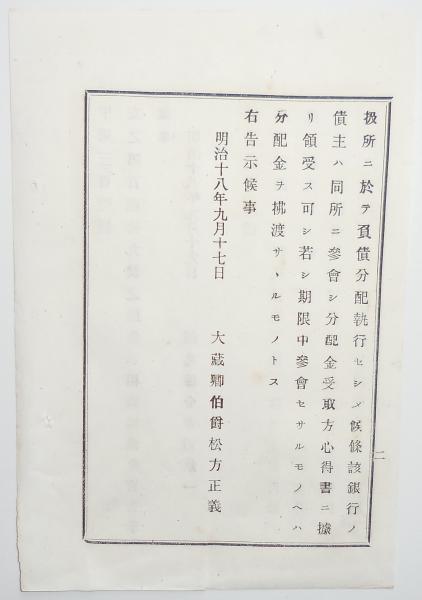 扱所ニ於テ負債分配執行セシメ候條該銀行ノ
債主ハ同所ニ參會シ分配金受取方心得書ニ據
リ領受ス可シ若シ期限中參會セサルモノヘハ
分配金ヲ拂渡サヽルモノトス
右告示候事
明治十八年九月十七日
大藏卿伯爵松方正義
二